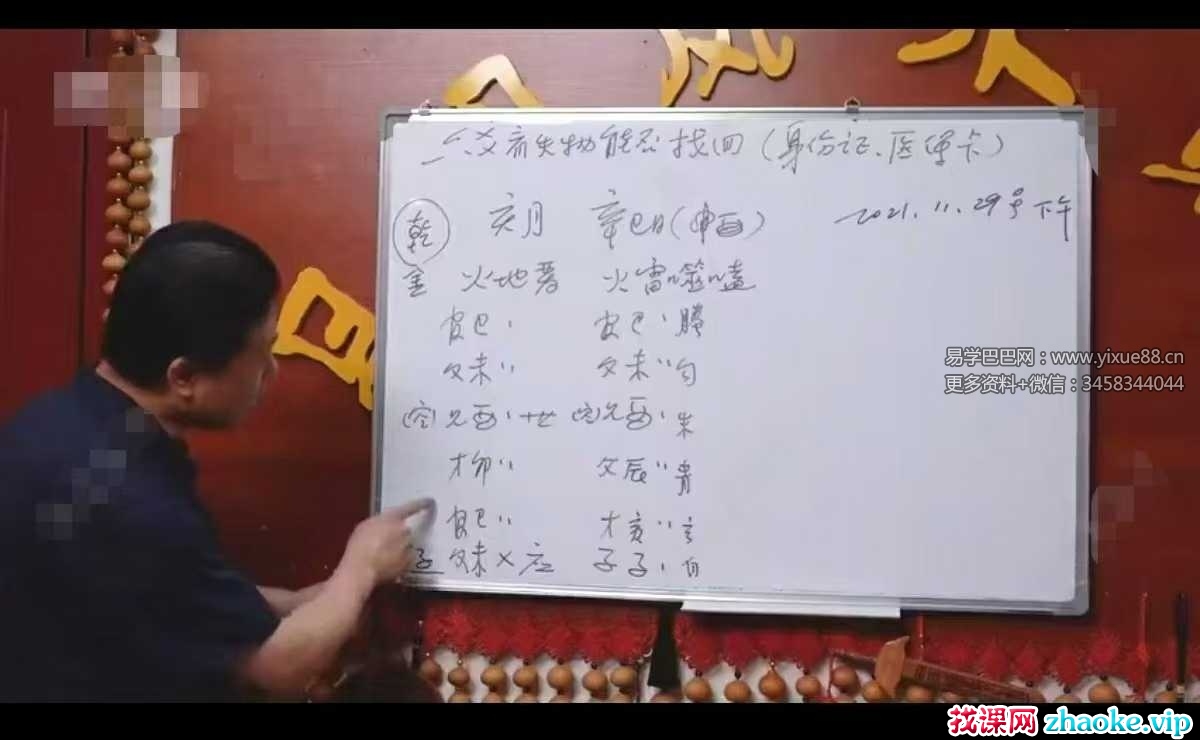 六爻断失物能否找回（身份证、医保卡）
2021.11.29号下午
乾 亥月 辛巳日（申酉）
金 火地晋 火雷噬嗑
官巳、 官巳、腾
父未〃 父未〃勾
(空)兄酉、世 (空)兄酉、朱
才卯〃 父辰〃青
官巳〃 才亥〃玄
子 父未×应 子子、白
易学巴巴网：www.yixue88.cn
更多资料+微信：3458344044
找课网 zhaoke.vip